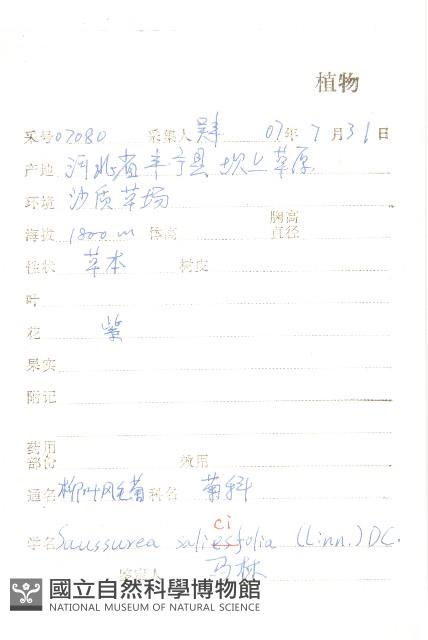 植物
采号 07080 采集人 07年 7月31日
产地 河北省丰宁县坝上草原
环境 沙质草场
海拔 1800 m 体高 胸高直径
性状 草本 树皮
叶
花 紫
果实
附记
药用部份 效用
通名 柳叶风毛菊 科名 菊科
ci
学名 Saussurea saliesfolia (Linn.) DC.
鉴定人 马林
國立自然科學博物館
NATIONAL MUSEUM OF NATURAL SCIENCE